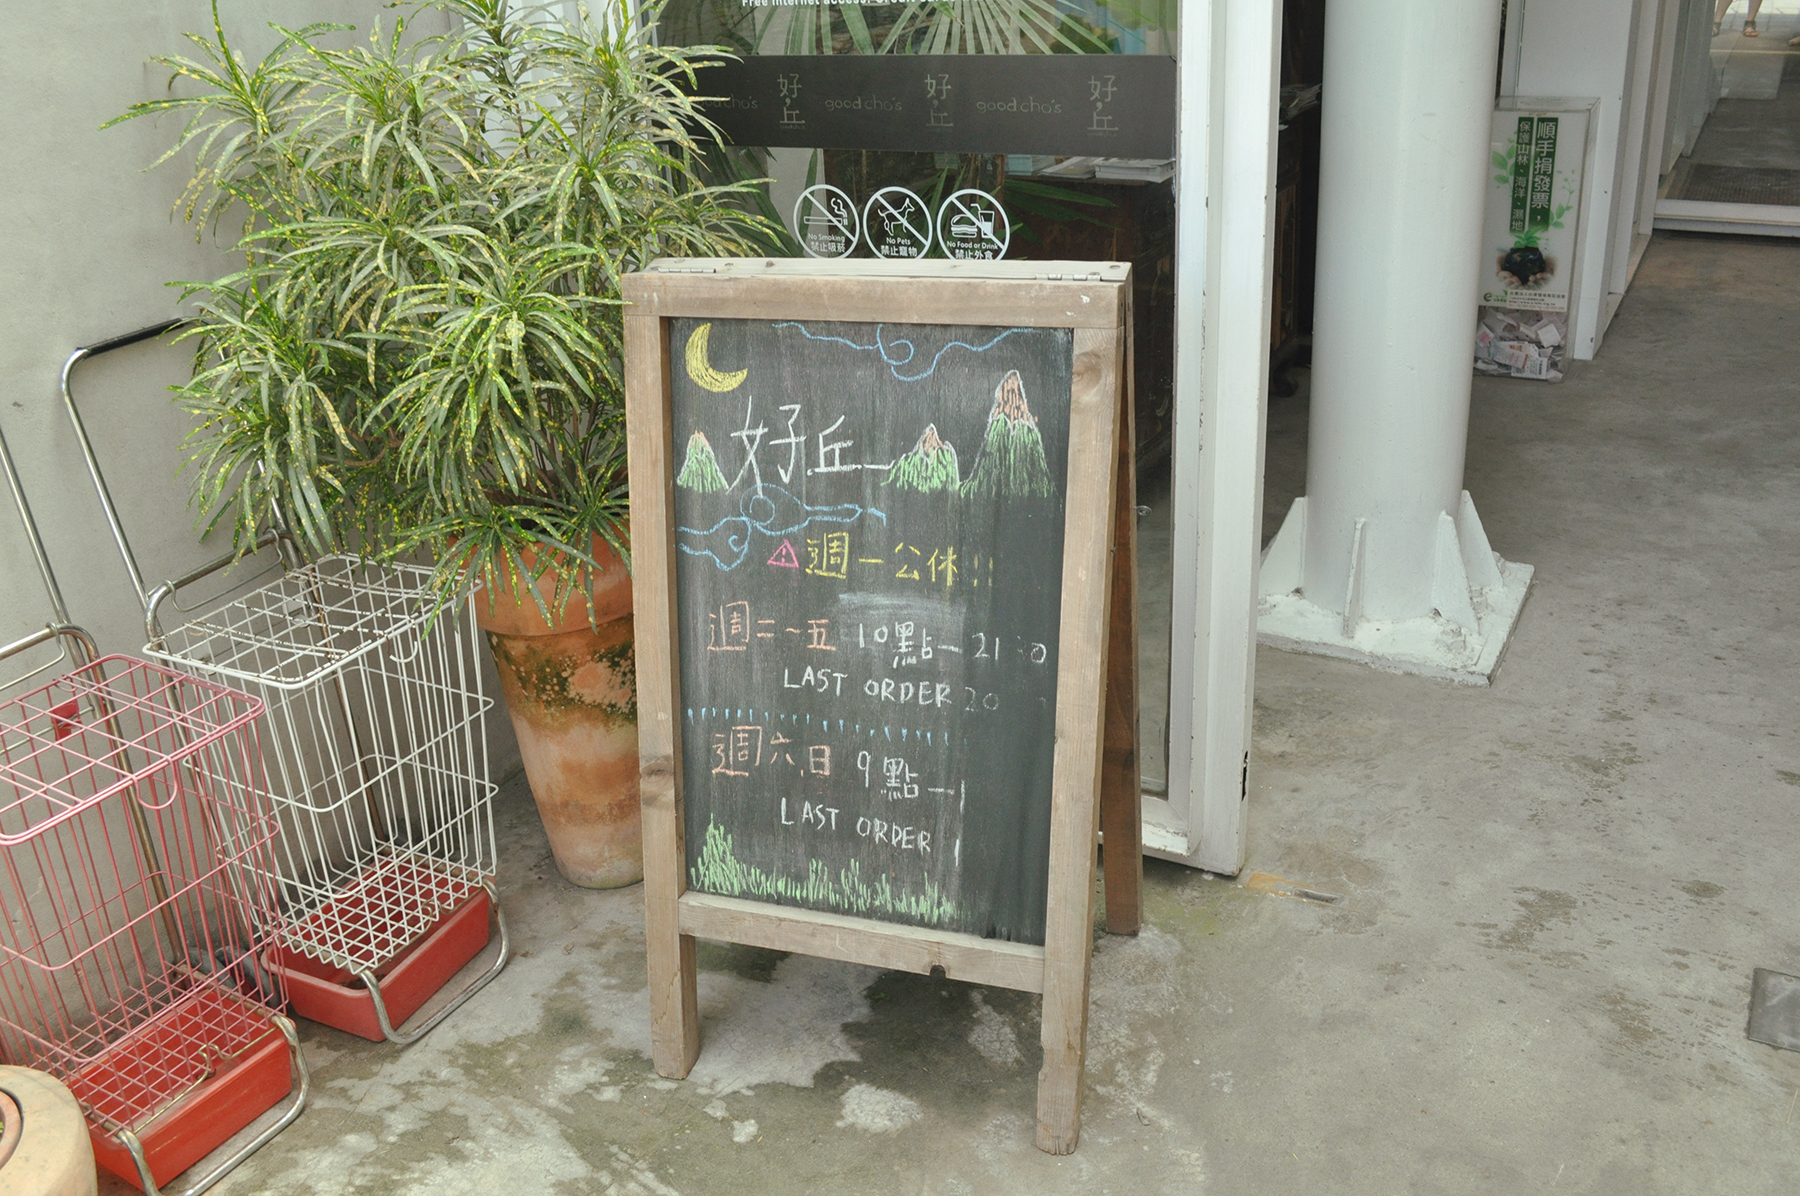 Free internet access.
好丘 good cho's 好丘 good cho's 好丘
No Smoking
禁止吸菸
No Pets
禁止寵物
No Food or Drink
禁止外食
順手捐發票，
保護山林、海洋、濕地
好丘
週一公休!!
週二~五 10點—21:0
LAST ORDER 20
週六.日 9點—
LAST ORDER